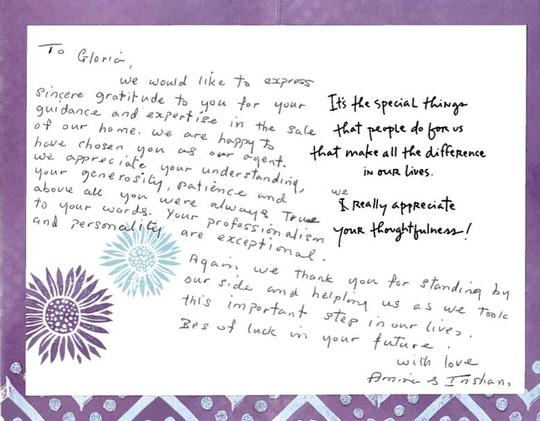 To Gloria,
we would like to express
sincere gratitude to you for your
guidance and expertise in the sale
of our home. we are happy to
have chosen you as our agent.
we appreciate your understanding,
your generosity, patience and
above all you were always true
to your words. Your professionalism
and personality are exceptional.
It's the special things
that people do for us
that make all the difference
in our lives.
we
I really appreciate
your thoughtfulness!
Again, we thank you for standing by
our side and helping us as we took
this important step in our lives.
Bes of luck in your future.
with love